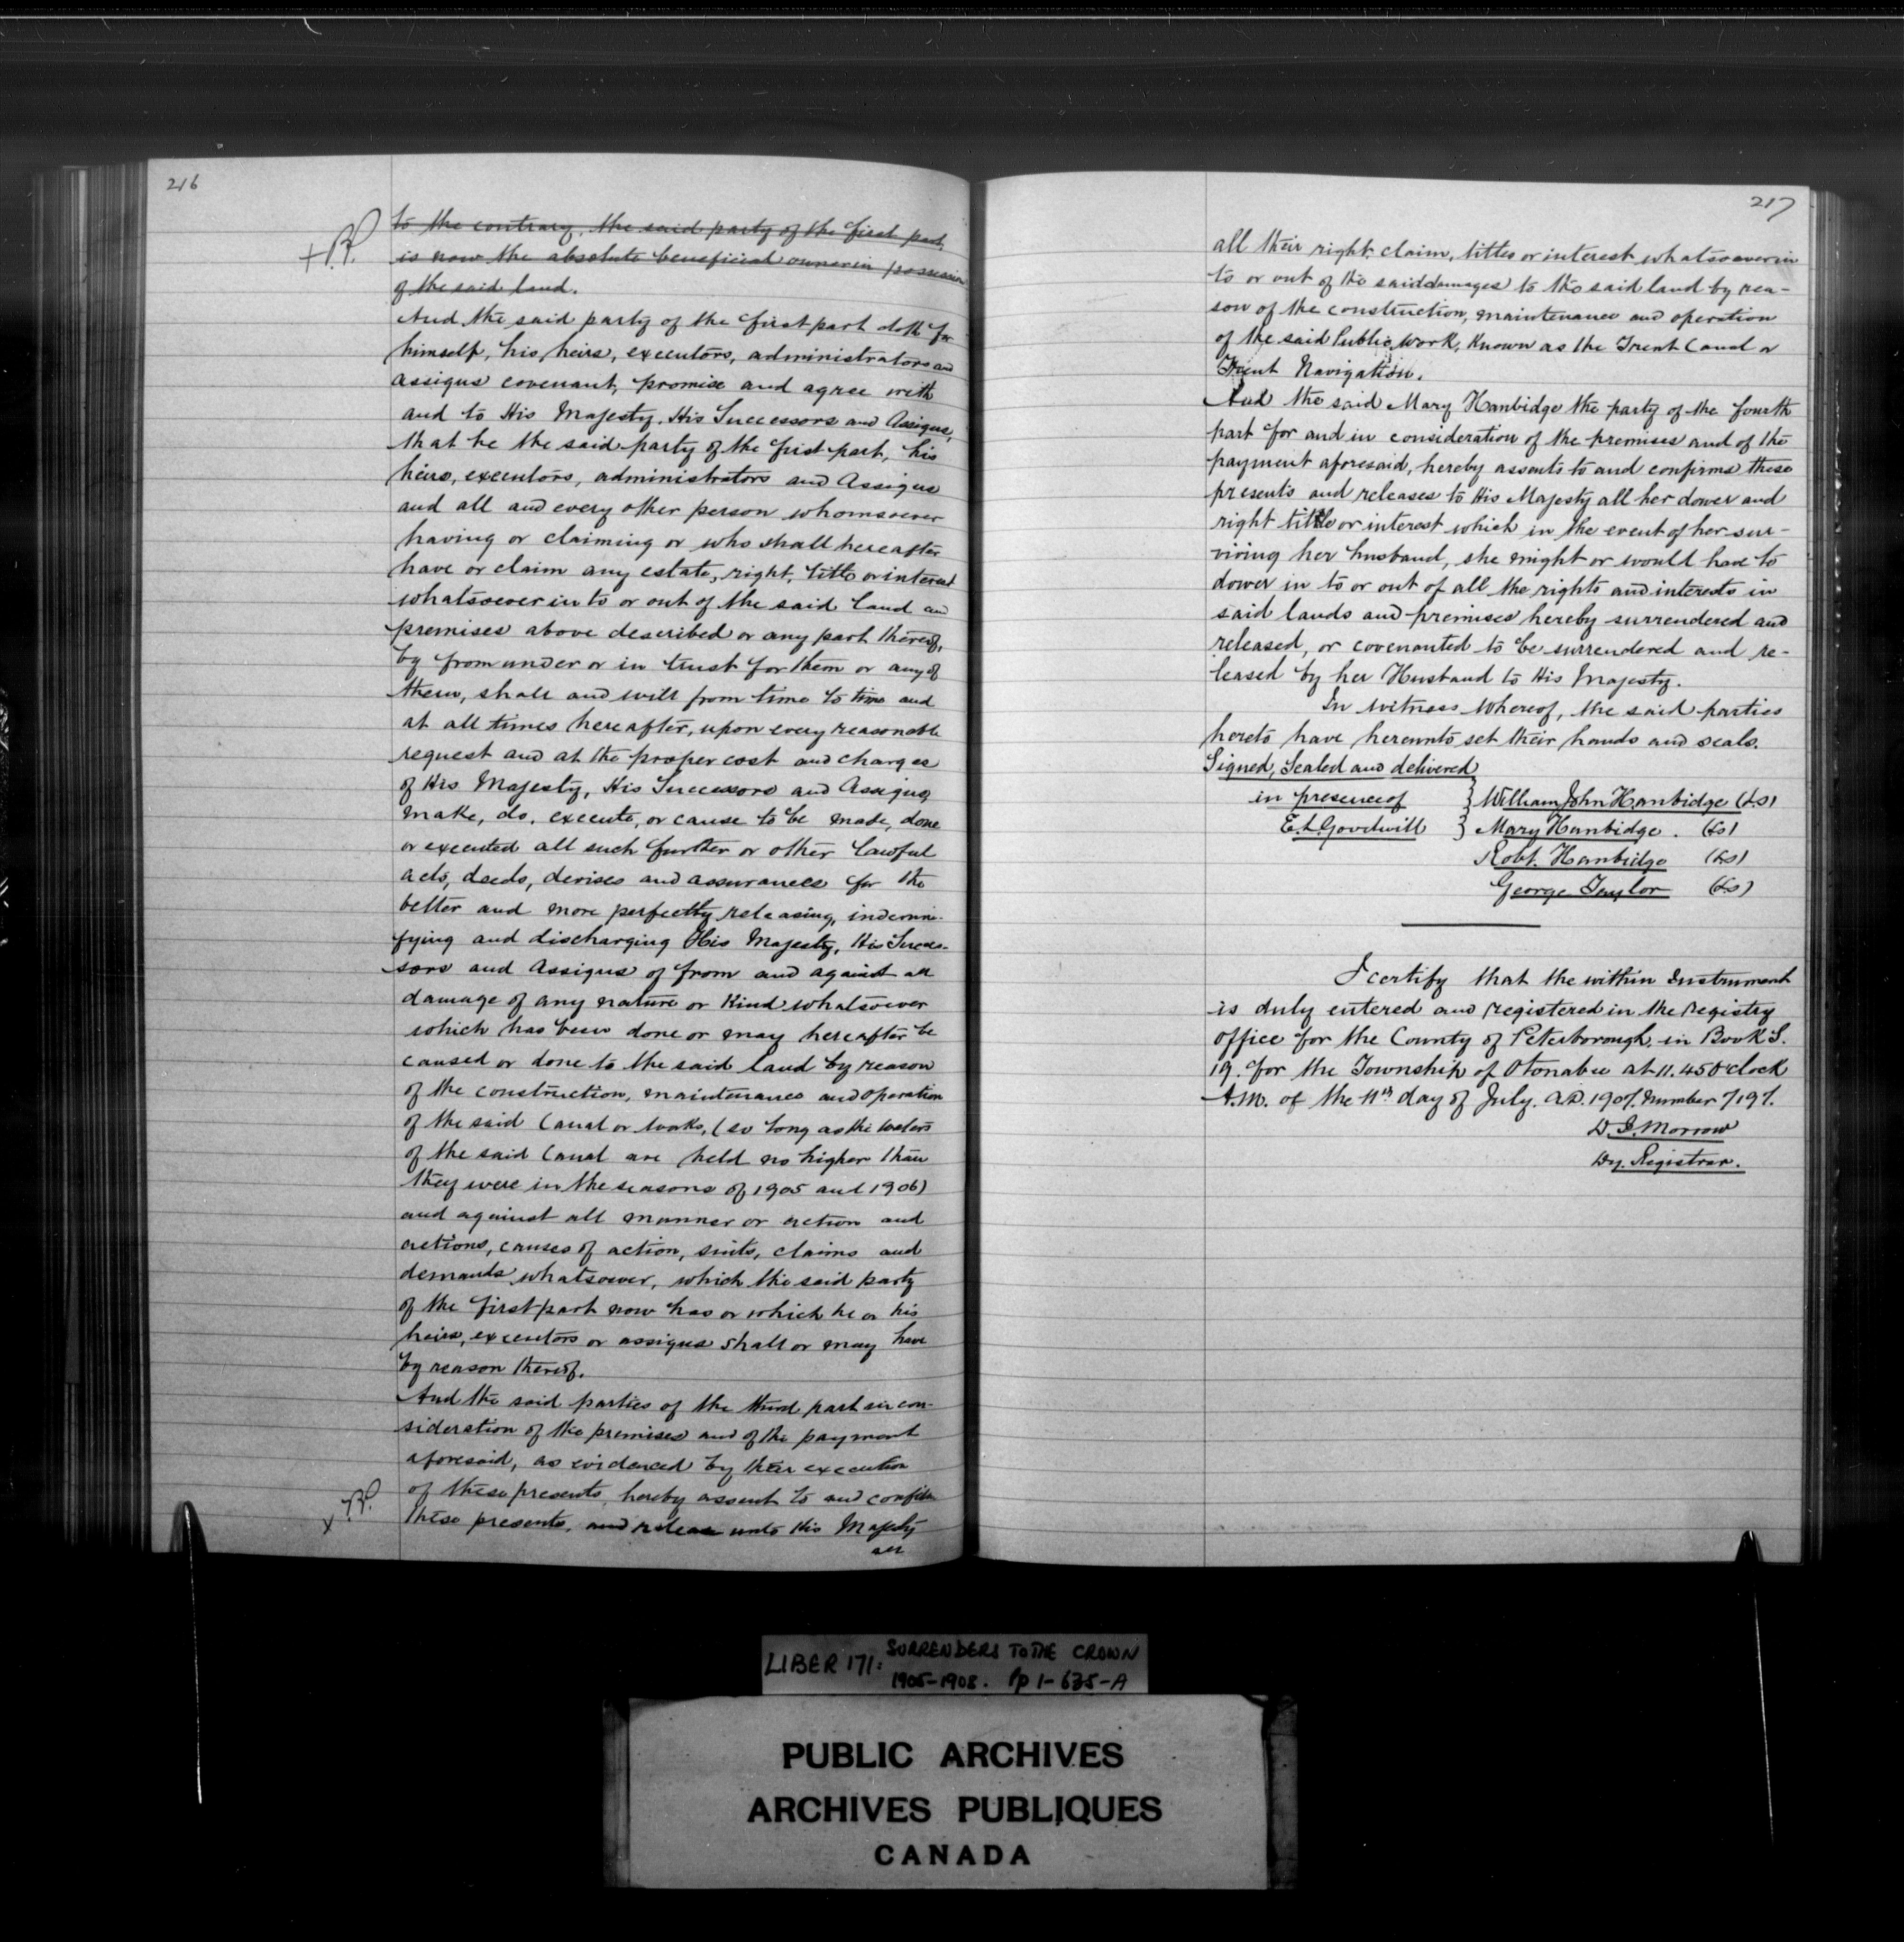 216
to the contrary, the said party of the first part,
is now the absolute beneficial owner in possession
of the said land.
And the said party of the first part doth for
himself, his heirs, executors, administrators and
assigns covenant, promise and agree with
and to His Majesty, His Successors and Assigns,
that he the said party of the first part, his
heirs, executors, administrators and Assigns
and all and every other person whomsoever
having or claiming or who shall hereafter
have or claim any estate, right, title or interest
whatsoever in to or out of the said land and
premises above described or any part thereof,
by from under or in trust for them or any of
them, shall and will from time to time and
at all times hereafter, upon every reasonable
request and at the proper cost and charges
of His Majesty, His Successors and Assigns,
make, do, execute, or cause to be made, done
or executed all such further or other lawful
acts, deeds, devises and assurances for the
better and more perfectly releasing, indemni-
fying and discharging His Majesty, His Succes-
sors and Assigns of from and against all
damage of any nature or kind whatsoever
which has been done or may hereafter be
caused or done to the said land by reason
of the construction, maintenance and operation
of the said Canal or works, (so long as the waters
of the said Canal are held no higher than
they were in the seasons of 1905 and 1906)
and against all manner or action and
actions, causes of action, suits, claims and
demands whatsoever, which the said party
of the first part now has or which he or his
heirs, executors or assigns shall or may have
by reason thereof.
And the said parties of the third part in con-
sideration of the premises and of the payment
aforesaid, as evidenced by their execution
of these presents, hereby assent to and confirm
these presents, and release unto His Majesty
all
217
all their right, claim, titles or interest whatsoever in
to or out of the said damages to the said land by rea-
son of the construction, maintenance and operation
of the said Public Work, known as the Trent Canal or
Trent Navigation.
And the said Mary Hanbidge the party of the fourth
part for and in consideration of the premises and of the
payment aforesaid, hereby assents to and confirms these
presents and releases to His Majesty all her dower and
right title or interest which in the event of her sur-
viving her husband, she might or would have to
dower in to or out of all the rights and interests in
said lands and premises hereby surrendered and
released, or covenanted to be surrendered and re-
leased by her Husband to His Majesty.
In witness whereof, the said parties
hereto have hereunto set their hands and seals.
Signed, Sealed and delivered
in presence of } William John Hanbidge (LS)
E.L. Goodwill } Mary Hanbidge. (LS)
Robt. Hanbidge (LS)
George Taylor (LS)
I certify that the within Instrument
is duly entered and registered in the Registry
Office for the County of Peterborough, in Book S.
19. for the Township of Otonabee at 11.45 O'clock
A.M. of the 11th day of July. A.D. 1907. Number 7197.
D. S. Morrow
Dy. Registrar.
LIBER 171: SURRENDERS TO THE CROWN
1905-1908. Pp 1-635-A
PUBLIC ARCHIVES
ARCHIVES PUBLIQUES
CANADA